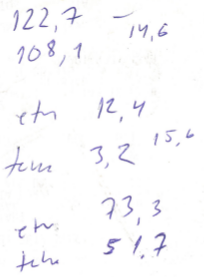 122,7 – 14,6
108,1
etn 12,4
15,6
3,2
etn 73,3
51,7